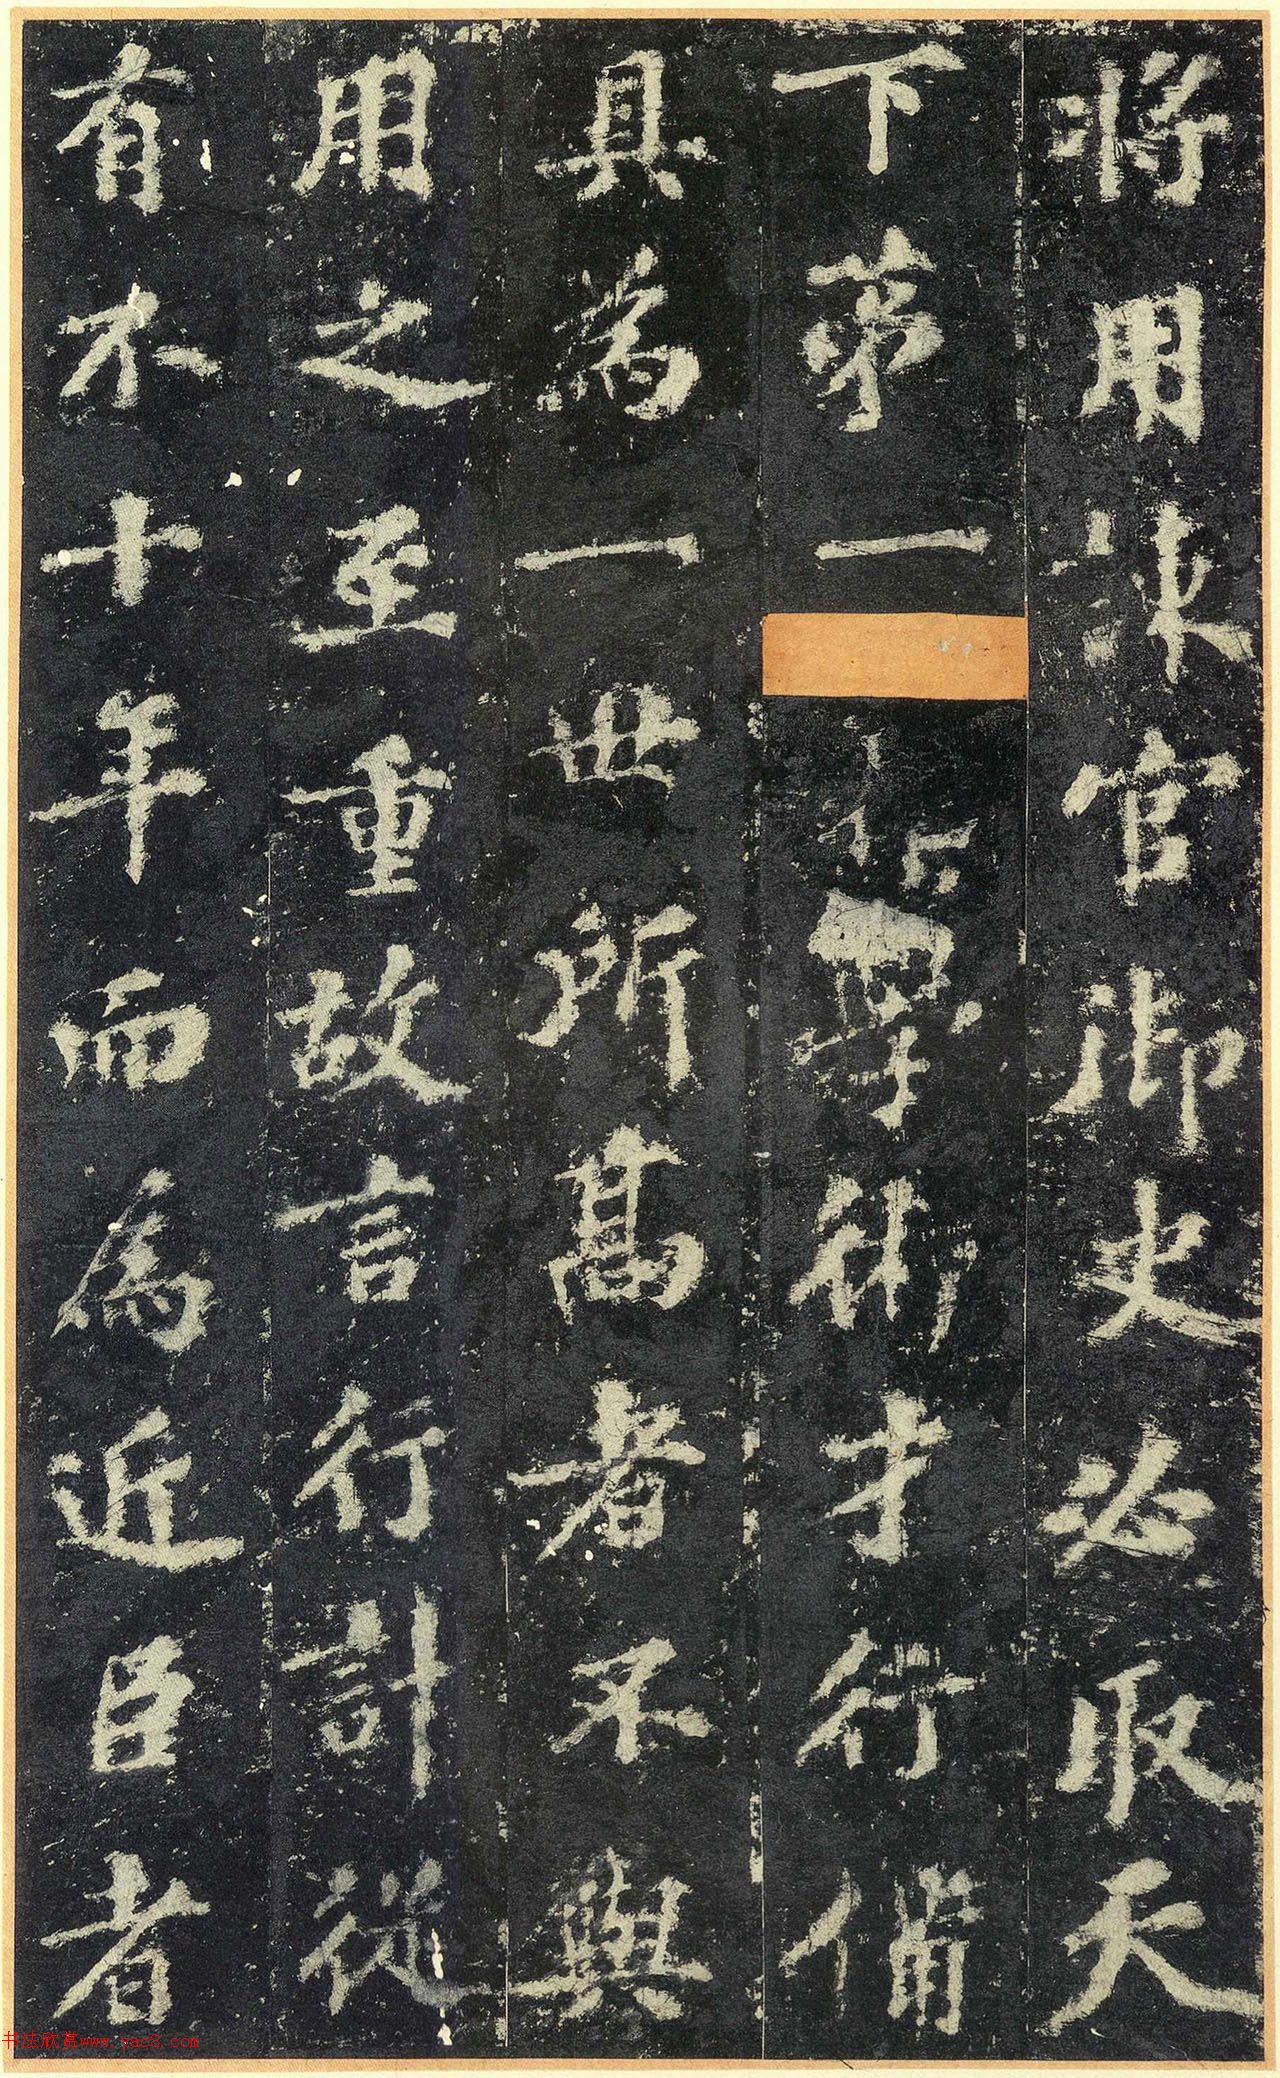 將用諫官御史必取天
下第一流非學術才行備
具為一世所高者不與
用之至重故言行計從
有不十年而為近臣者
书法欣赏www.yac8.com